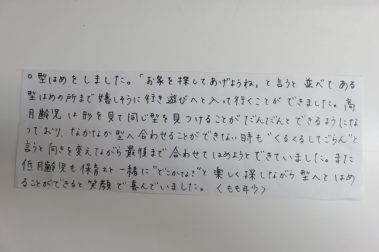 ○型はめをしました。「お家を探してあげようね」と言うと並べてある
型はめの所まで嬉しそうに行き遊びへと入って行くことができました。高
月齢児は形を見て同じ型を見つけることがだんだんとできるようにな
っており、なかなか型へ合わせることができない時も"くるくるしてごらん"と
言うと向きを変えながら最後まで合わせてはめようとできていました。また
低月齢児も保育士と一緒に"どこかなぁ"と楽しく探しながら型へとはめ
ることができると笑顔で喜んでいました。